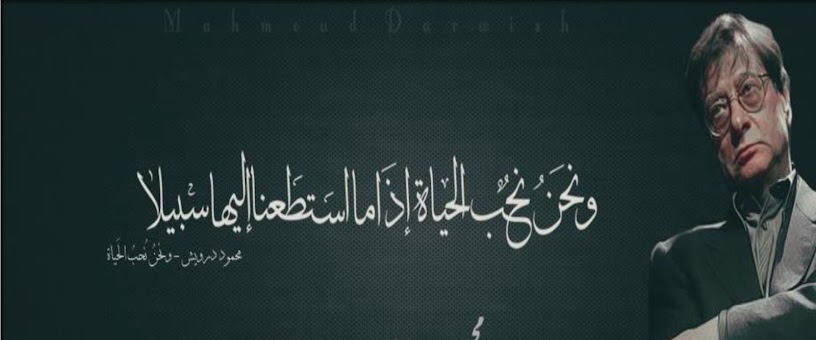 Mahmoud Darwish
ونحنُ نحبُّ الحياة إذَا ما استَطَعنا إليها سبيلا
محمود درويش - ونحنُ نُحبُ الحَياة